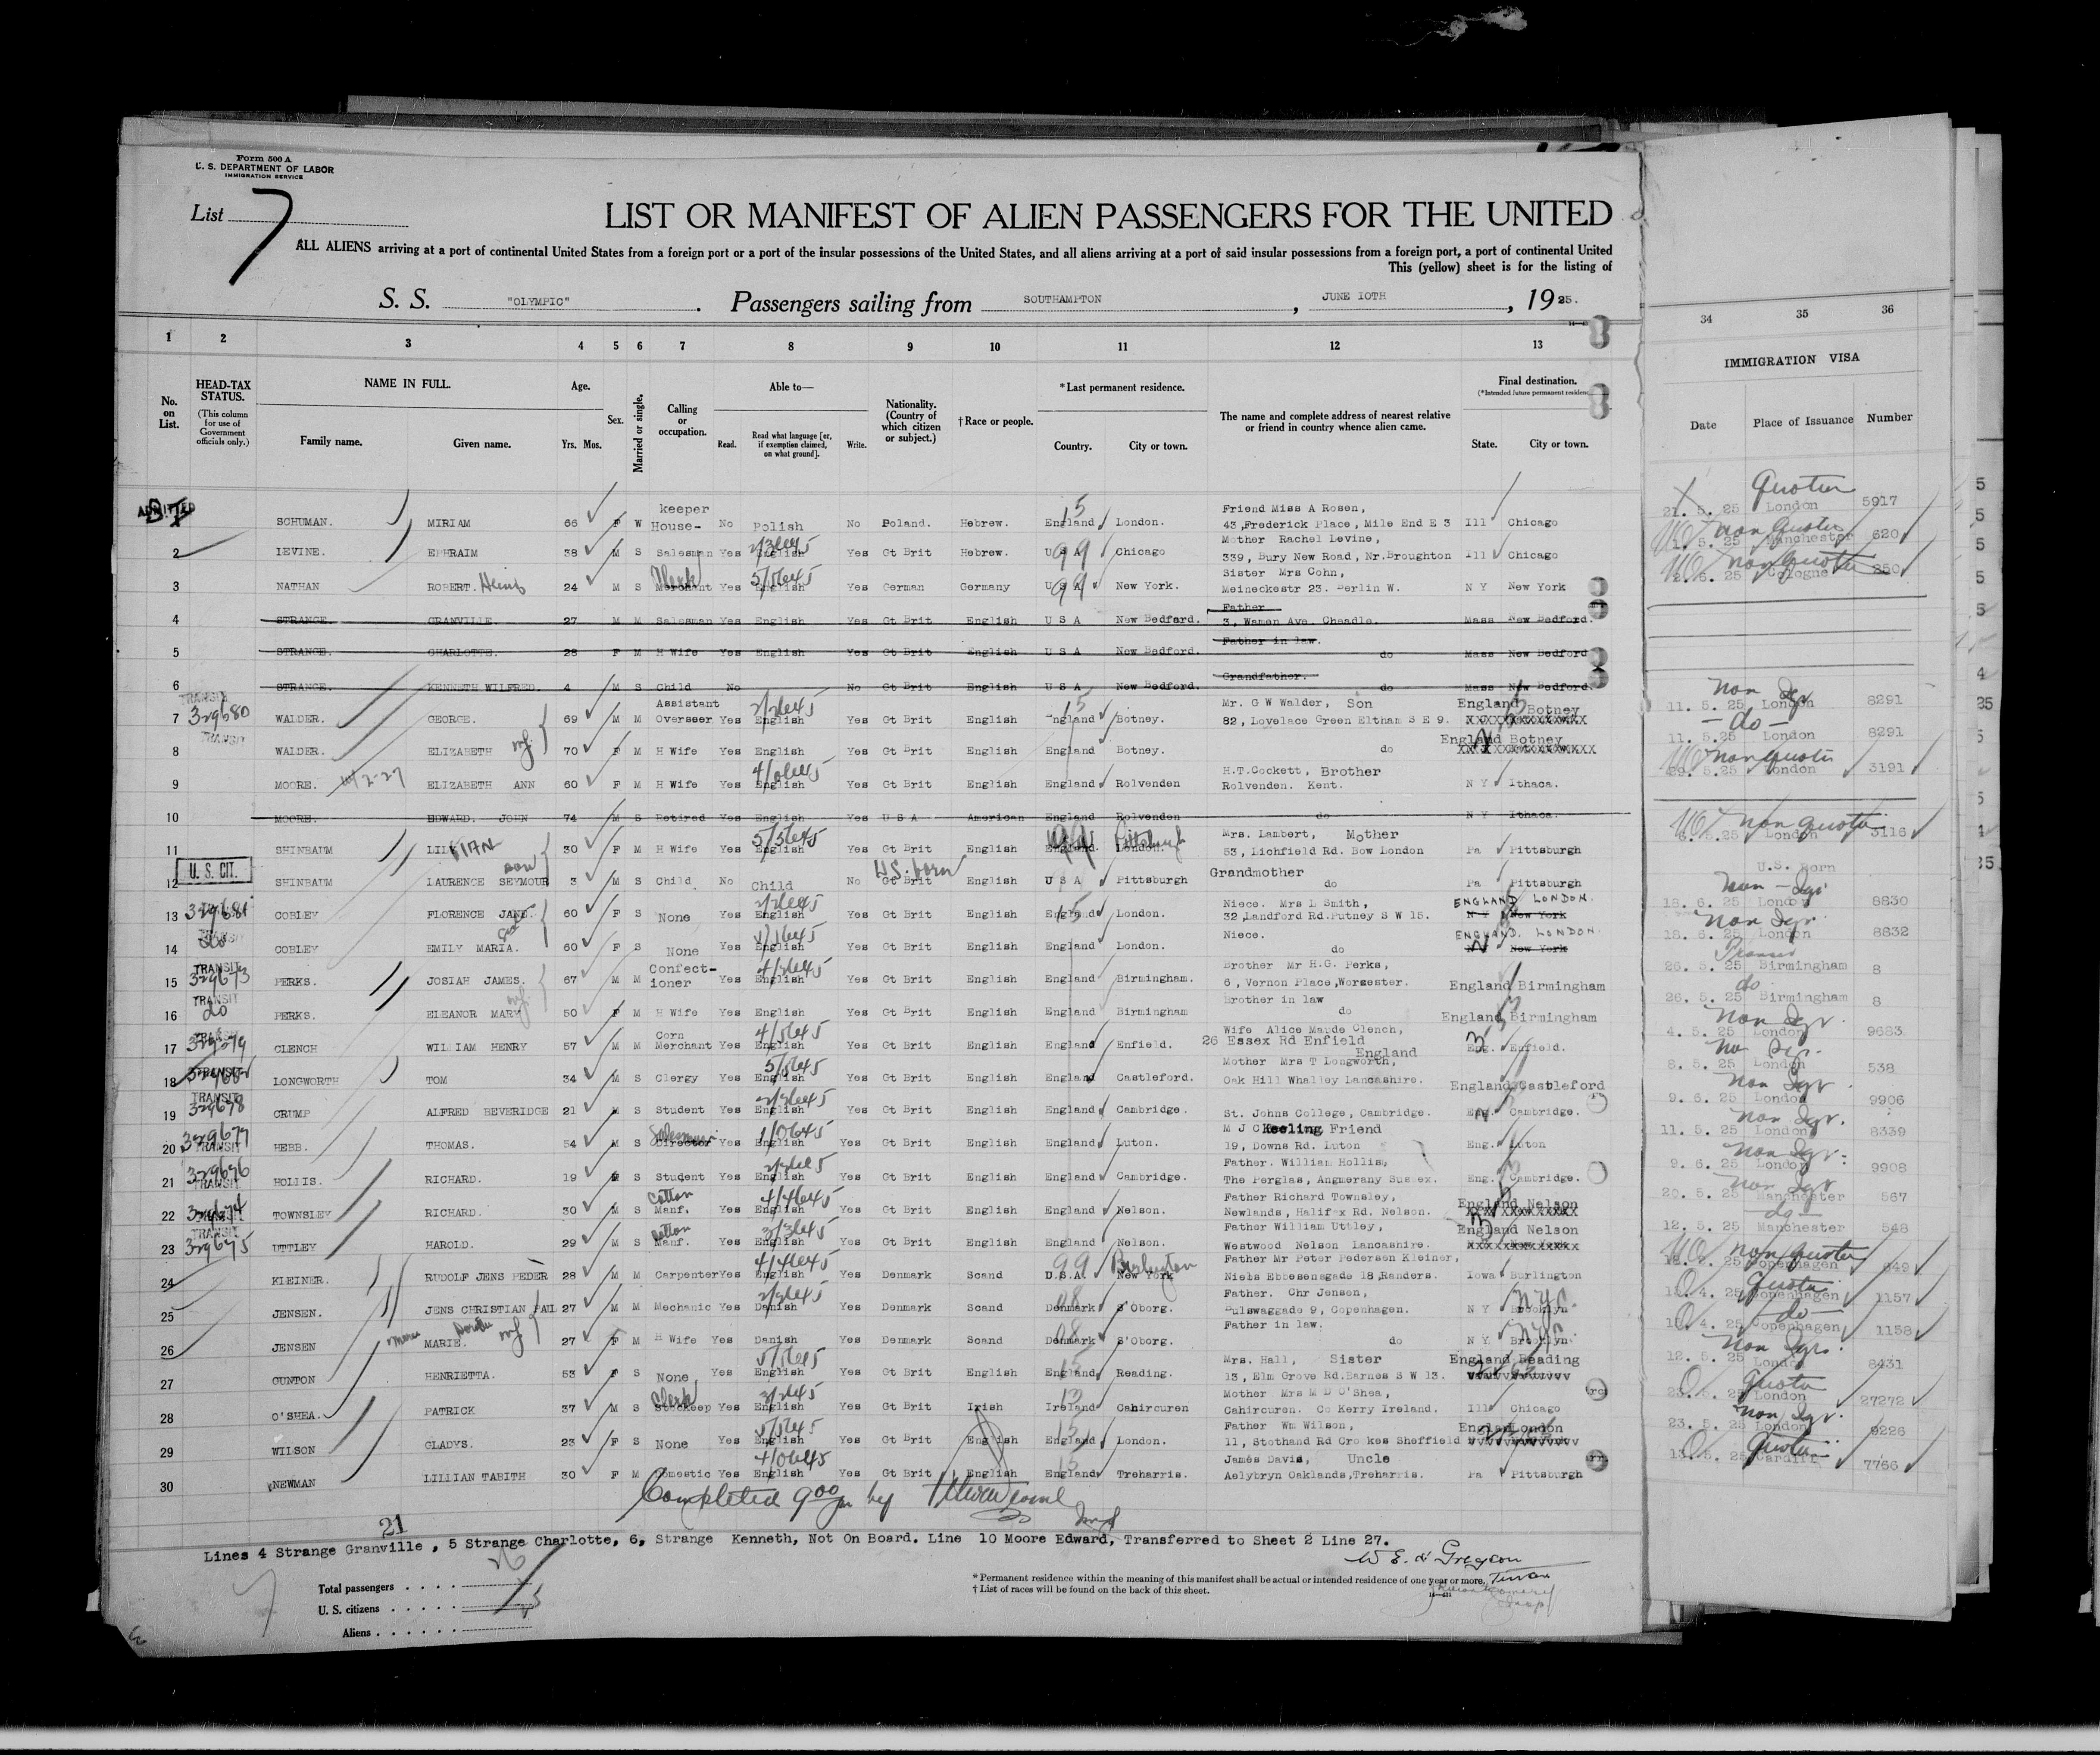 Form 500 A
U. S. DEPARTMENT OF LABOR
IMMIGRATION SERVICE
List 7
LIST OR MANIFEST OF ALIEN PASSENGERS FOR THE UNITED
ALL ALIENS arriving at a port of continental United States from a foreign port or a port of the insular possessions of the United States, and all aliens arriving at a port of said insular possessions from a foreign port, a port of continental United
This (yellow) sheet is for the listing of
S. S. "OLYMPIC" . Passengers sailing from SOUTHAMPTON , JUNE 10TH , 1925.
1 2 3 4 5 6 7 8 9 10 11 12 13 34 35 36
No. on List.
HEAD-TAX STATUS.
(This column for use of Government officials only.)
NAME IN FULL.
Family name. Given name.
Age.
Yrs. Mos.
Sex.
Married or single.
Calling or occupation.
Able to—
Read. Read what language [or, if exemption claimed, on what ground]. Write.
Nationality. (Country of which citizen or subject.)
†Race or people.
*Last permanent residence.
Country. City or town.
The name and complete address of nearest relative or friend in country whence alien came.
Final destination.
(*Intended future permanent residence
State. City or town.
IMMIGRATION VISA
Date Place of Issuance Number
ADMITTED SCHUMAN. MIRIAM 66 F W keeper House- No Polish No Poland. Hebrew. England London. Friend Miss A Rosen, 43,Frederick Place, Mile End E 3 Ill Chicago 21. 5. 25 London 5917
2 LEVINE. EPHRAIM 38 M S Salesman Yes English Yes Gt Brit Hebrew. U S A Chicago Mother Rachel Levine, 339, Bury New Road, Nr.Broughton Ill Chicago 1. 5. 25 Manchester 620
3 NATHAN ROBERT. 24 M S Merchant Clerk Yes English Yes German Germany U S A New York. Sister Mrs Cohn, Meineckestr 23. Berlin W. N Y New York 2. 6. 25 Cologne 850
4 STRANGE. GRANVILLE. 27 M M Salesman Yes English Yes Gt Brit English U S A New Bedford. Father 3, Waman Ave. Cheadle. Mass New Bedford.
5 STRANGE. CHARLOTTE. 28 F M H Wife Yes English Yes Gt Brit English U S A New Bedford. Father in law. do Mass New Bedford
6 STRANGE. KENNETH WILFRED. 4 M S Child No No Gt Brit English U S A New Bedford. Grandfather. do Mass New Bedford.
7 TRANSIT 329680 WALDER. GEORGE. 69 M M Assistant Overseer Yes English Yes Gt Brit English England Botney. Mr. G W Walder, Son 82, Lovelace Green Eltham S E 9. England Botney 11. 5. 25 London 8291
8 TRANSIT WALDER. ELIZABETH 70 F M H Wife Yes English Yes Gt Brit English England Botney. do England Botney 11. 5.25 London 8291
9 MOORE. ELIZABETH ANN 60 F M H Wife Yes English Yes Gt Brit English England Rolvenden H.T.Cockett, Brother Rolvenden. Kent. N Y Ithaca. 29. 5.25 London 3191
10 MOORE. EDWARD. JOHN 74 M S Retired Yes English Yes U S A American England Rolvenden do N Y Ithaca.
11 SHINBAUM LILLIAN 30 F M H Wife Yes English Yes Gt Brit English England. London. Pittsburgh Mrs. Lambert, Mother 53, Lichfield Rd. Bow London Pa Pittsburgh 6. 5.25 London 3116
12 U. S. CIT. SHINBAUM LAURENCE SEYMOUR son 3 M S Child No Child No Gt Brit U.S. born English U S A Pittsburgh Grandmother do Pa Pittsburgh U.S. Born
13 329681 COBLEY FLORENCE JANE. 60 F S None Yes English Yes Gt Brit English England London. Niece. Mrs L Smith, 32,Landford Rd.Putney S W 15. ENGLAND LONDON. N Y New York 18. 6. 25 London 8830
14 do COBLEY EMILY MARIA. 60 F S None Yes English Yes Gt Brit English England London. Niece. do ENGLAND. LONDON. New York 18. 6. 25 London 8832
15 TRANSIT 329673 PERKS. JOSIAH JAMES. 67 M M Confect-ioner Yes English Yes Gt Brit English England Birmingham. Brother Mr H.G. Perks, 6, Vernon Place,Worcester. England Birmingham 26. 5. 25 Birmingham 8
16 TRANSIT do PERKS. ELEANOR MARY 50 F M H Wife Yes English Yes Gt Brit English England Birmingham Brother in law do England Birmingham 26. 5. 25 Birmingham 8
17 CLENCH WILLIAM HENRY 57 M M Corn Merchant Yes English Yes Gt Brit English England Enfield. Wife Alice Maude Clench, 26 Essex Rd Enfield England Eng. Enfield. 4. 5. 25 London 9683
18 TRANSIT LONGWORTH TOM 34 M S Clergy Yes English Yes Gt Brit English England Castleford. Mother Mrs T Longworth, Oak Hill Whalley Lancashire. England Castleford 6. 5. 25 London 538
19 TRANSIT 329678 CRUMP ALFRED BEVERIDGE 21 M S Student Yes English Yes Gt Brit English England Cambridge. St. Johns College, Cambridge. Eng. Cambridge. 9. 6. 25 London 9906
20 329677 TRANSIT HEBB. THOMAS. 54 M S Director Salesman Yes English Yes Gt Brit English England Luton. M J C Keeling Friend 19, Downs Rd. Luton Eng. Luton 11. 5. 25 London 8339
21 329676 TRANSIT HOLLIS. RICHARD. 19 M S Student Yes English Yes Gt Brit English England Cambridge. Father. William Hollis, The Perglas, Angmerany Sussex. Eng. Cambridge. 9. 6. 25 London 9908
22 329674 TOWNSLEY RICHARD. 30 M S Cotton Manf. Yes English Yes Gt Brit English England Nelson. Father Richard Townsley, Newlands, Halifax Rd. Nelson. England Nelson 20. 5. 25 Manchester 567
23 TRANSIT 329675 UTTLEY HAROLD. 29 M S Cotton Manf. Yes English Yes Gt Brit English England Nelson. Father William Uttley, Westwood Nelson Lancashire. England Nelson 12. 5. 25 Manchester 548
24 KLEINER. RUDOLF JENS PEDER 28 M M Carpenter Yes English Yes Denmark Scand U.S.A. New York Burlington Father Mr Peter Pedersen Kleiner, Niels Ebbesensgade 18,Randers. Iowa Burlington Copenhagen 849
25 JENSEN. JENS CHRISTIAN PAUL 27 M M Mechanic Yes Danish Yes Denmark Scand Denmark S'Oborg. Father. Chr Jensen, Pulswaggade 9, Copenhagen. N Y Brooklyn 4. 25 Copenhagen 1157
26 JENSEN MARIE. 27 F M H Wife Yes Danish Yes Denmark Scand Denmark S'Oborg. Father in law. do N Y Brooklyn 4. 25 Copenhagen 1158
27 GUNTON HENRIETTA. 53 F S None Yes English Yes Gt Brit English England Reading. Mrs. Hall, Sister 13, Elm Grove Rd.Barnes S W 13. England Reading 12. 5. 25 London 8431
28 O'SHEA. PATRICK 37 M S Stockeep Clerk Yes English Yes Gt Brit Irish Ireland Cahircuren Mother Mrs M D O'Shea, Cahircuren. Co Kerry Ireland. Ill Chicago 23. 5. 25 London 27272
29 WILSON GLADYS. 23 F S None Yes English Yes Gt Brit English England London. Father Wm Wilson, 11, Stothand Rd Crookes Sheffield England London 23. 5. 25 London 9226
30 NEWMAN LILLIAN TABITH 30 F M Domestic Yes English Yes Gt Brit English England Treharris. James Davis, Uncle Aelybryn Oaklands,Treharris. Pa Pittsburgh 5. 25 Cardiff 7766
Completed 9 00 by
21
Lines 4 Strange Granville , 5 Strange Charlotte, 6, Strange Kenneth, Not On Board. Line 10 Moore Edward, Transferred to Sheet 2 Line 27.
Total passengers . . . .
U. S. citizens . . . . .
Aliens . . . . . .
*Permanent residence within the meaning of this manifest shall be actual or intended residence of one year or more.
†List of races will be found on the back of this sheet.